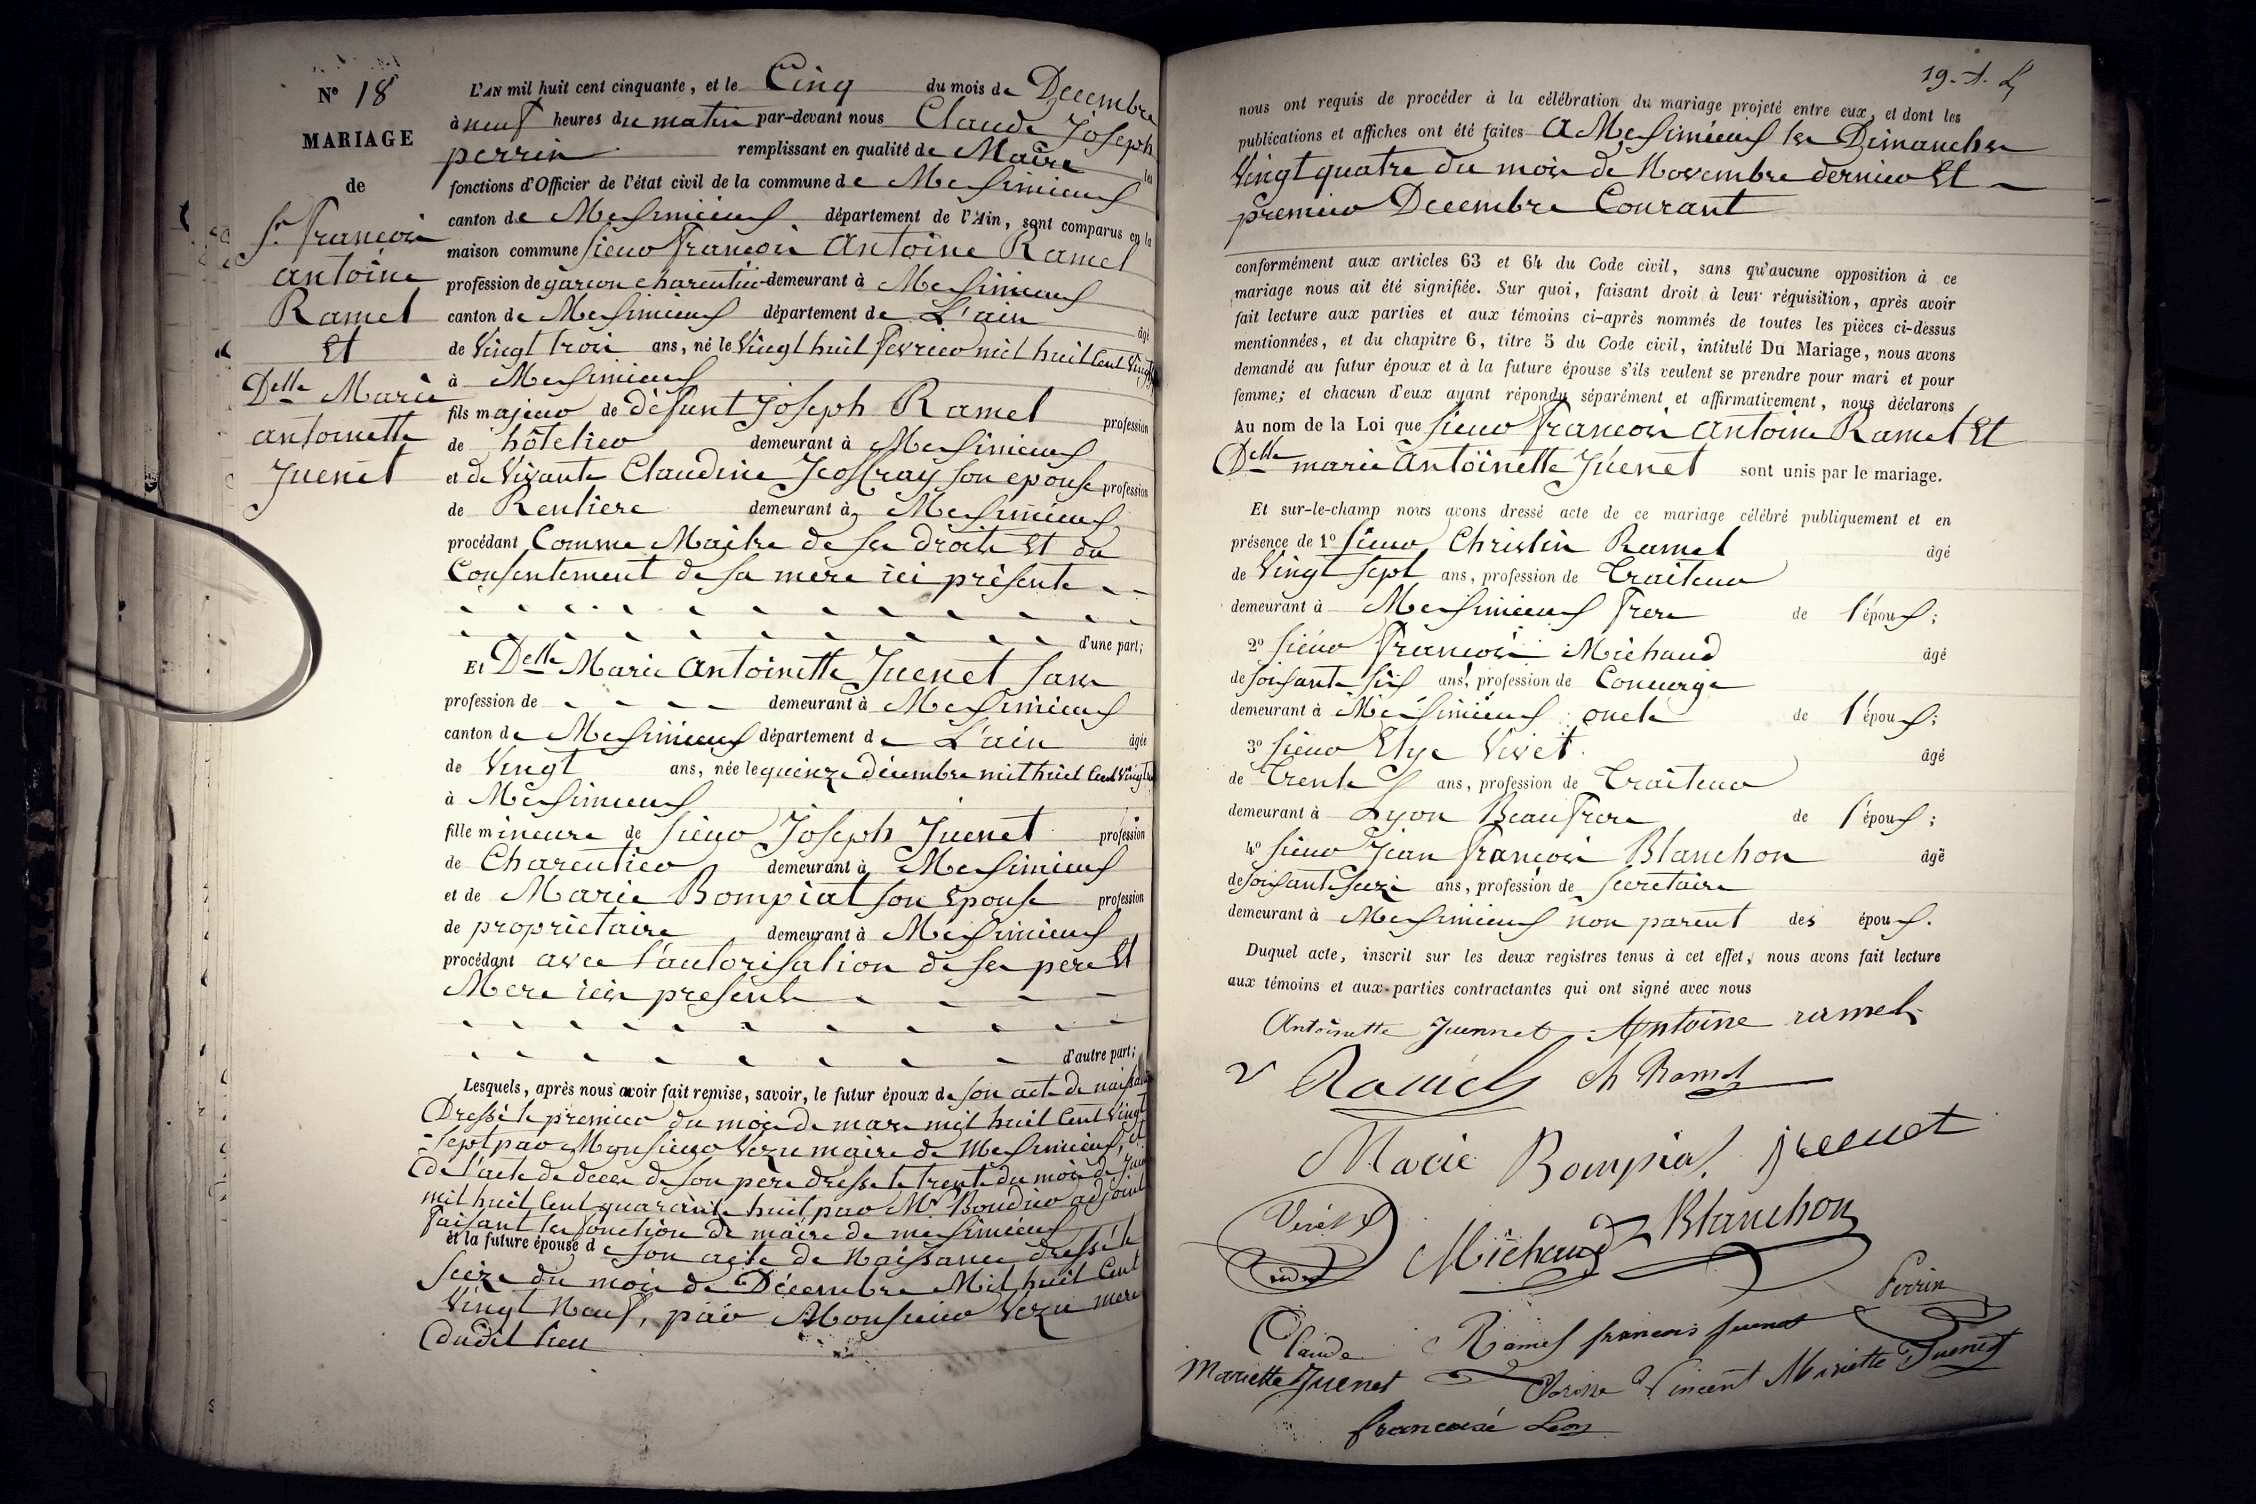 N° 18
MARIAGE
de
Sr françois
antoine
Ramel
Et
Delle Marie
antoinette
Juenet
L'AN mil huit cent cinquante, et le Cinq du mois de Decembre
à neuf heures du matin par-devant nous Claude Joseph
perrin remplissant en qualité de Maire les
fonctions d'Officier de l'état civil de la commune de Meximieux
canton de Meximieux département de l'Ain, sont comparus en la
maison commune Sieur françois Antoine Ramel
profession de garcon charcutier demeurant à Meximieux
canton de Meximieux département de L'ain âgé
de Vingt trois ans, né le Vingt huit fevrier mil huit Cent Vingt
à Meximieux
fils majeur de défunt Joseph Ramel profession
de hôtelier demeurant à Meximieux
et de Vivante Claudine Jeoffray Son epouse profession
de Rentiere demeurant à Meximieux
procédant Comme Maitre de ses droits Et du
Consentement de sa mere ici présente
d'une part;
Et Delle Marie Antoinette Juenet Sans
profession de demeurant à Meximieux
canton de Meximieux département de L'ain âgée
de Vingt ans, née le quinze décembre mil huit Cent Vingt
à Meximieux
fille mineure de Sieur Joseph Juenet profession
de Charcutier demeurant à Meximieux
et de Marie Bompiat Son Epouse profession
de propriétaire demeurant à Meximieux
procédant avec l'autorisation de ses pere Et
Mere ici présents
d'autre part;
Lesquels, après nous avoir fait remise, savoir, le futur époux de son acte de naissance
Dressé le premier du mois de mars mil huit Cent Vingt
-Sept par Monsieur Vezu maire de Meximieux, et
de l'acte de decès de Son père dressé le trente du mois de
mil huit Cent quarante huit par Mr Boudier adjoint
faisant les fonction de maire de meximieux
et la future épouse de son acte de Naissance dressé le
Seize du mois de Décembre Mil huit Cent
Vingt Neuf, par Monsieur Vezu mere
dudit lieu
19. A. L
nous ont requis de procéder à la célébration du mariage projeté entre eux, et dont les
publications et affiches ont été faites A Meximieux les Dimanches
Vingt quatre du mois de Novembre dernier Et
premier Decembre Courant
conformément aux articles 63 et 64 du Code civil, sans qu'aucune opposition à ce
mariage nous ait été signifiée. Sur quoi, faisant droit à leur réquisition, après avoir
fait lecture aux parties et aux témoins ci-après nommés de toutes les pièces ci-dessus
mentionnées, et du chapitre 6, titre 5 du Code civil, intitulé Du Mariage, nous avons
demandé au futur époux et à la future épouse s'ils veulent se prendre pour mari et pour
femme; et chacun d'eux ayant répondu séparément et affirmativement, nous déclarons
Au nom de la Loi que Sieur françois Antoine Ramel Et
Delle marie Antoinette Juenet sont unis par le mariage.
Et sur-le-champ nous avons dressé acte de ce mariage célébré publiquement et en
présence de 1° Sieur Christin Ramel âgé
de Vingt Sept ans, profession de Traiteur
demeurant à Meximieux frere de l'époux;
2° Sieur françois Michaud âgé
de Soixante Six ans, profession de Concierge
demeurant à Meximieux oncle de l'époux;
3° Sieur Elye Vivet âgé
de Trente ans, profession de Traiteur
demeurant à Lyon Beaufrere de l'époux;
4° Sieur Jean françois Blanchon âgé
de Soixante Seize ans, profession de Secretaire
demeurant à Meximieux non parent des époux.
Duquel acte, inscrit sur les deux registres tenus à cet effet, nous avons fait lecture
aux témoins et aux parties contractantes qui ont signé avec nous
Antoinette Juennet Antoine ramel
Ramel ch Ramel
Marie Bompiat Juenet
Michaud Blanchon
Perrin
Claude Ramel francois Juenet
Mariette Juenet Vincent Mariette Juenet